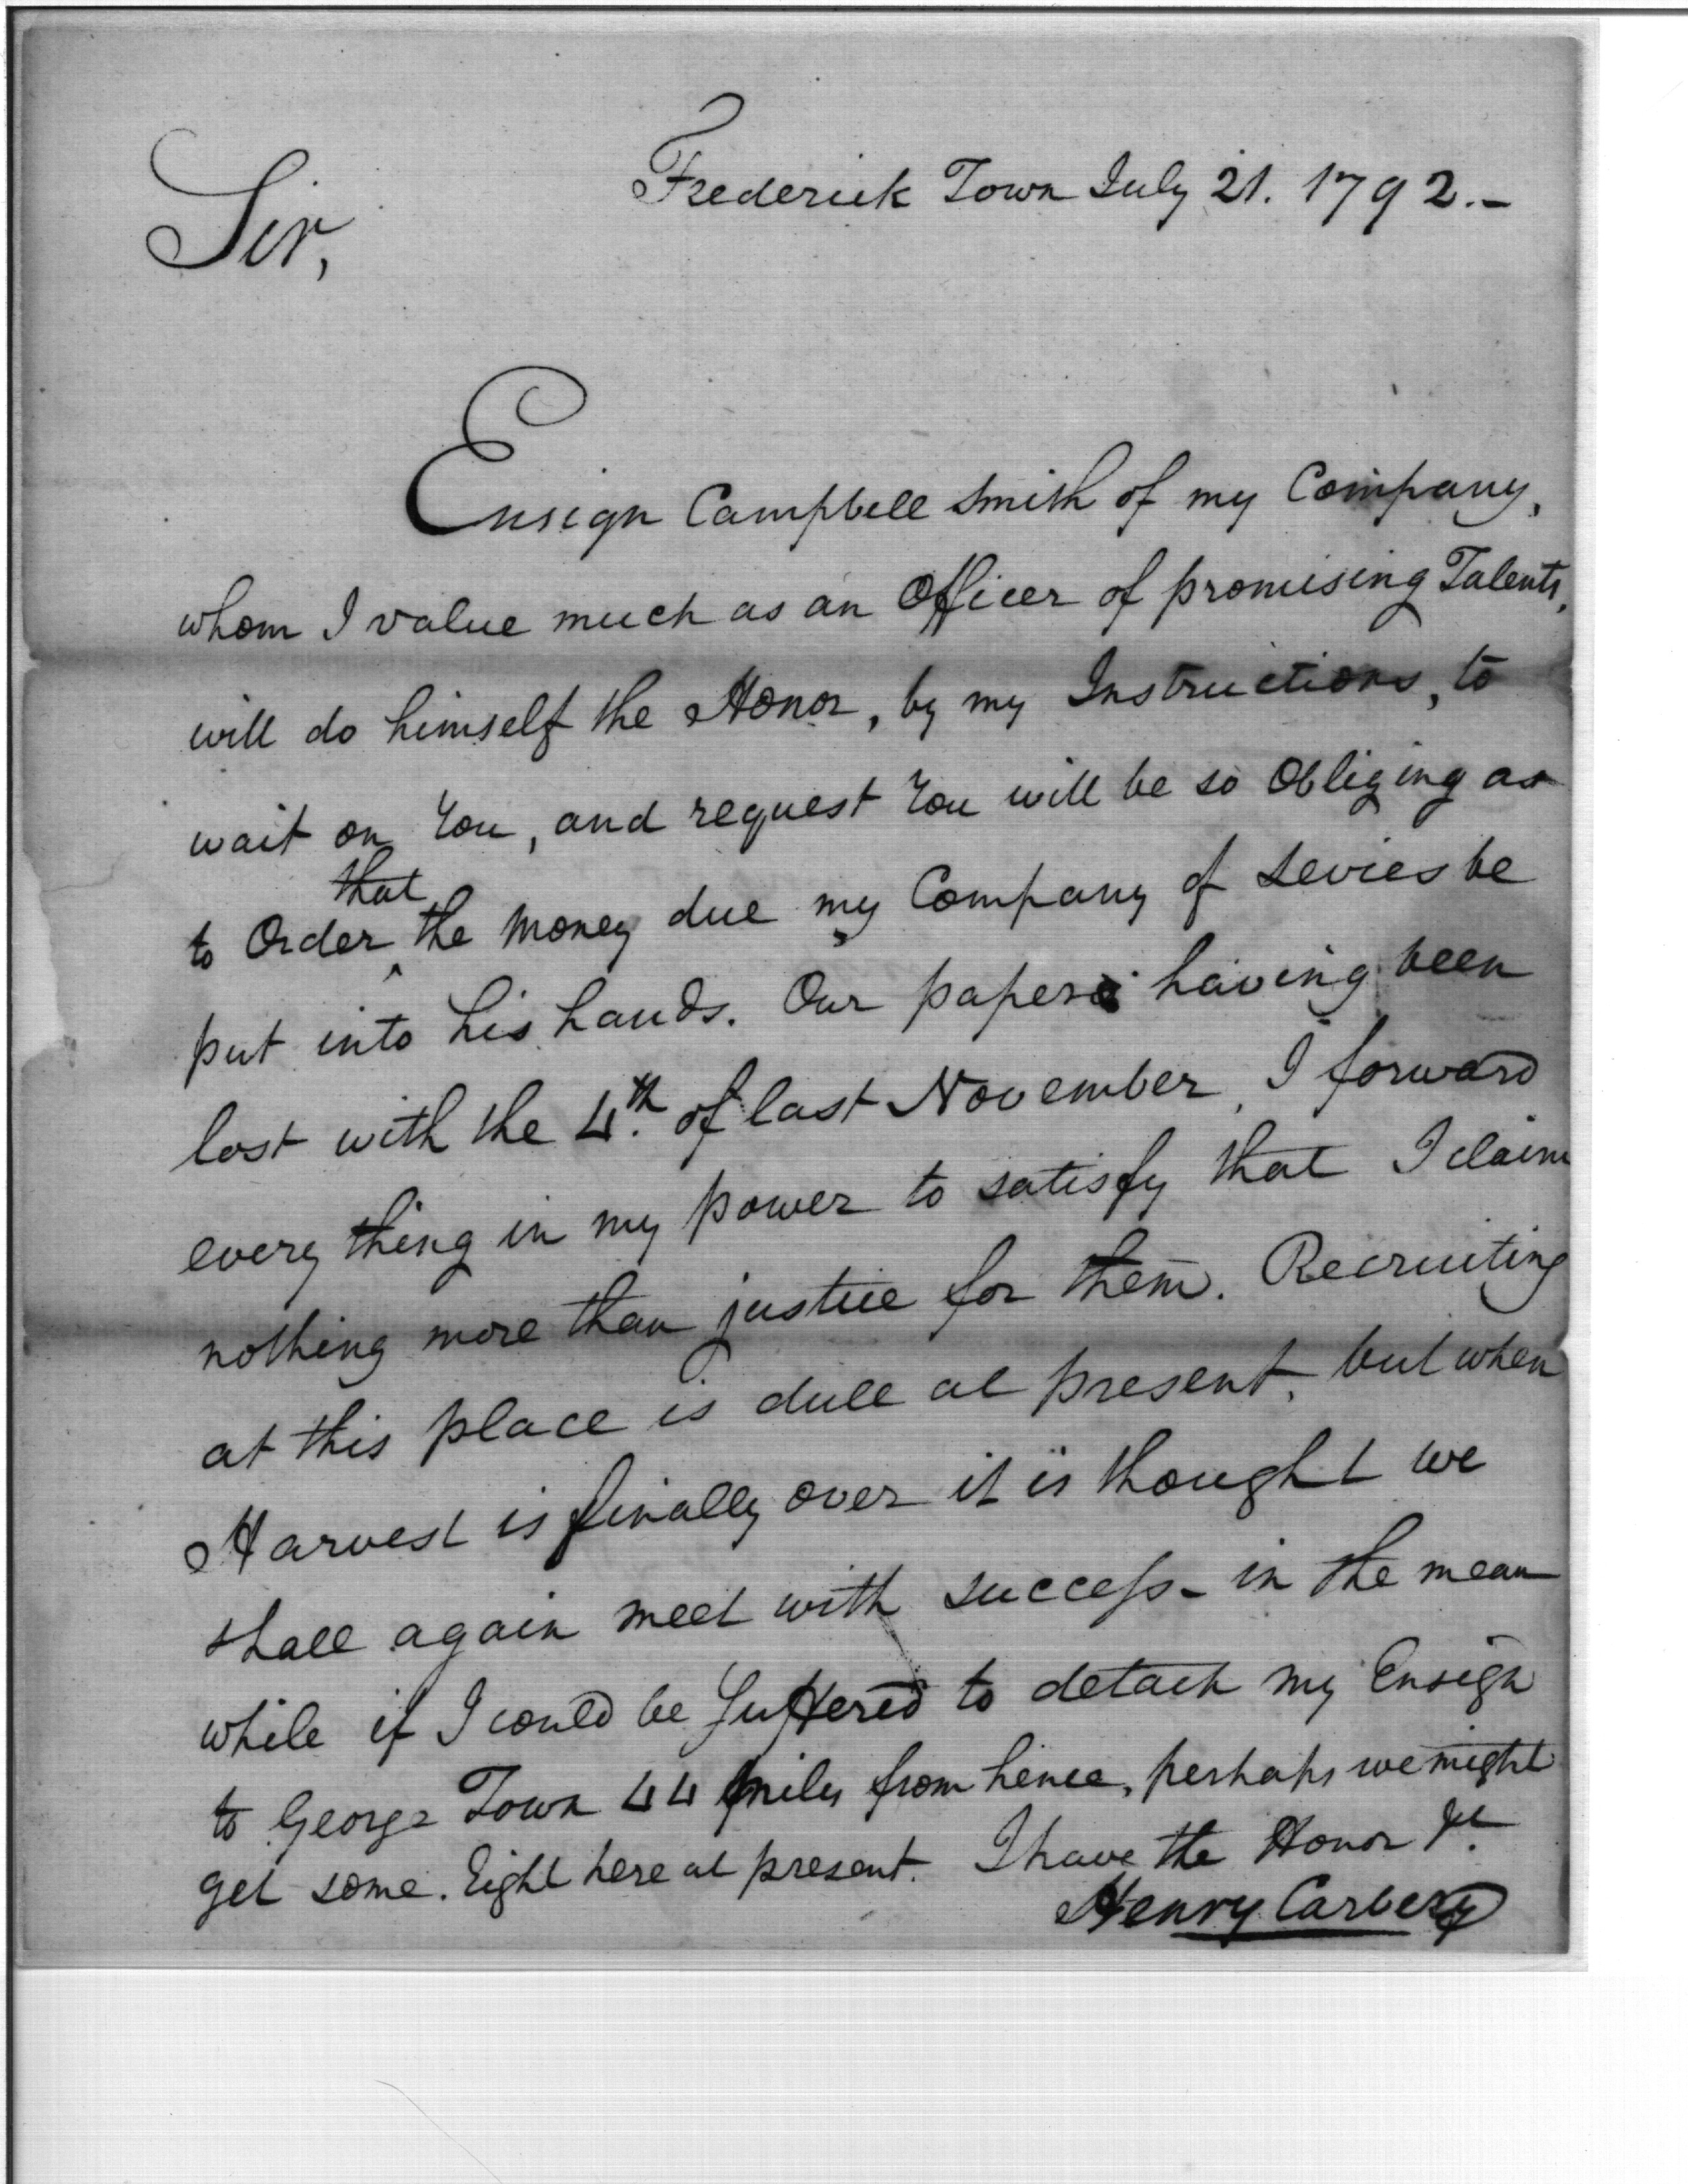 Frederick Town July 21. 1792.-
Sir,
Ensign Campbell Smith of my Company,
whom I value much as an Officer of promising Talents,
will do himself the Honor, by my Instructions, to
wait on You, and request You will be so Obliging as
that
to Order ^ the money due my Company of Levies be
put into his hands. Our papers having been
lost with the 4th. of last November, I forward
every thing in my power to satisfy that I claim
nothing more than justice for them. Recruiting
at this place is dull at present, but when
Harvest is finally over it is thought we
shall again meet with success - in the mean
while if I could be Suffered to detach my Ensign
to George Town 44 miles from hence, perhaps we might
get some. Eight here at present. I have the Honor &c.
Henry Carbery